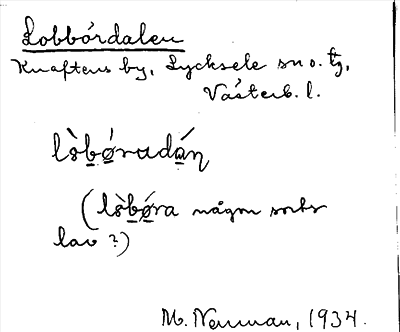 Lobbórdalen
Knaftens by, Lycksele sn o. tg,
Västerb. l.
lòbǿrudáŋ
(lòbǿra någon sorts
lav ?)
M. Nenuan, 1934.